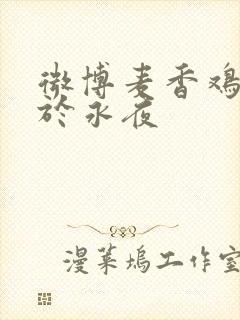 微博麦香鸡
於永夜
漫莱坞工作室